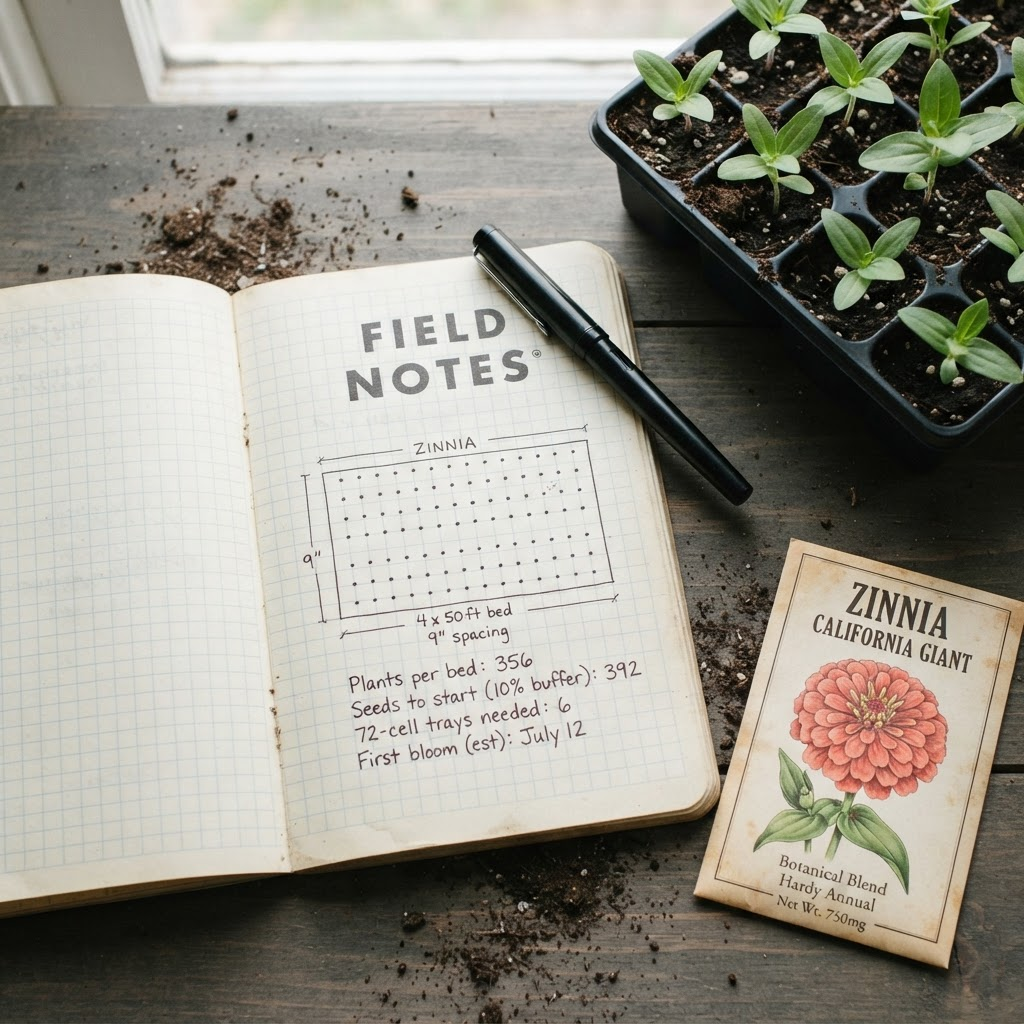 FIELD
NOTES®
ZINNIA
9"
4 x 50ft bed
9" spacing
Plants per bed: 356
Seeds to start (10% buffer): 392
72-cell trays needed: 6
First bloom (est): July 12
ZINNIA
CALIFORNIA GIANT
Botanical Blend
Hardy Annual
Net Wt. 750mg